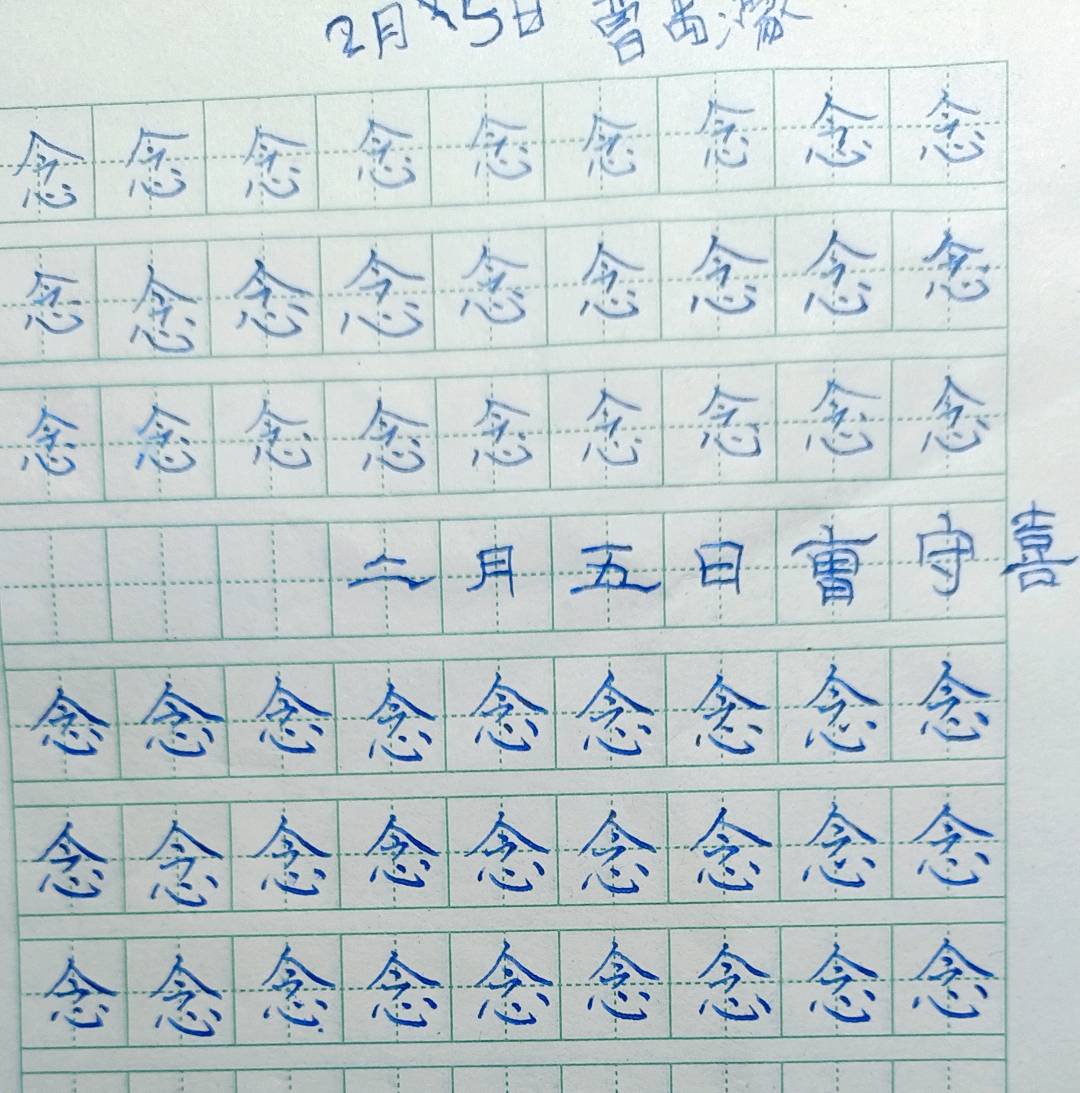 2月5日 曹禹濛
念念念念念念念念念
念念念念念念念念念
念念念念念念念念念
二月五日曹守喜
念念念念念念念念念
念念念念念念念念念
念念念念念念念念念